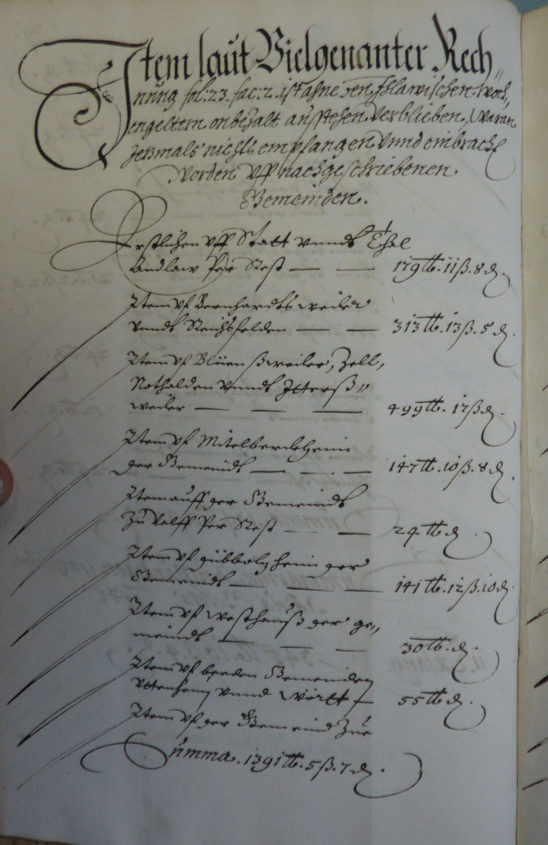 Item laut Vielgenanter Rech„
nung fol: 23. fac: 2. ist ahne den Woch„
engeltern onbezalt anstehen Verblieben, Waran
Jehmals nicht empfangen Unnd einbracht
Worden Uff nachgeschriebenen
Gemeinden.
Erstlichen Uff Statt unnd
Andlaw Per Rest — — 179 lb. 11 ß. 8 d.
Item Uf Bernhardtsweiler
unnd Reichsfelden — — 313 lb. 13 ß. 5 d.
Item Uf Blienßweiler, Zell,
Nothalden unnd Itterß„
weiler — — — 499 lb. 17 ß d.
Item Uf Mitelberckheim
der Gemeindt — — 147 lb. 10 ß. 8 d.
Item auff der Gemeindt
Zu Valff Per Rest — — 24 lb d.
Item Uf der
Gemeindt — — 141 lb. 12 ß. 10 d.
Item Uf Westhauß der ge„
meindt — — — 30 lb. d.
Item Uf beeden Gemeinden
Uttenheim unnd — 55 lb d.
Item Uf der Gemeind Zue
Summa. 1391 lb. 5 ß. 7 d.